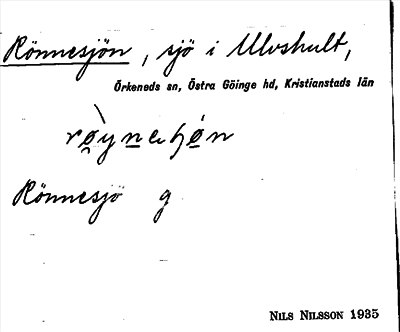 Rönnesjön, sjö i Ulvshult,
Örkeneds sn, Östra Göinge hd, Kristianstads län
Rönnesjö g
NILS NILSSON 1935